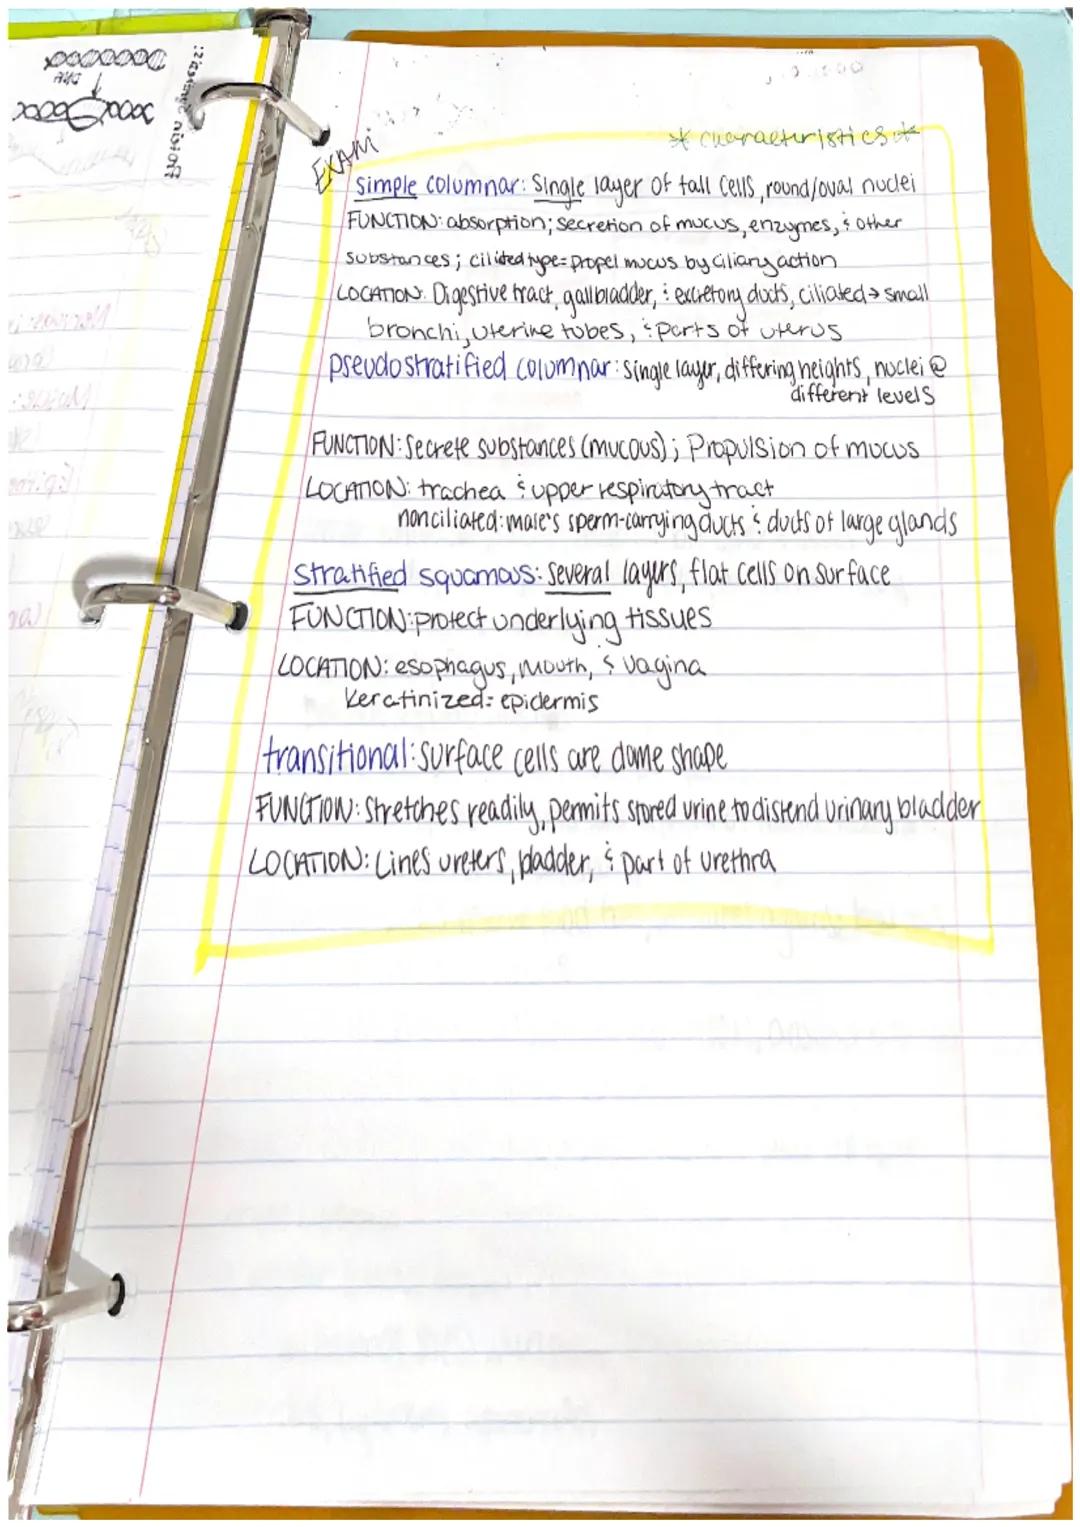 EXAM
* characteristics *
simple columnar: Single layer of tall cells, round/oval nuclei
FUNCTION: absorption; secretion of mucus, enzymes, & other
substances; ciliated type = propel mucus by ciliary action
LOCATION: Digestive tract, gallbladder, & excretory ducts, ciliated → small
bronchi, uterine tubes, & parts of uterus
pseudostratified columnar: single layer, differing heights, nuclei @
different levels
FUNCTION: Secrete substances (mucous); Propulsion of mucus
LOCATION: trachea & upper respiratory tract
nonciliated: male's sperm-carrying ducts & ducts of large glands
stratified squamous: several layers, flat cells on surface
FUNCTION: protect underlying tissues
LOCATION: esophagus, mouth, & vagina
Keratinized: epidermis
transitional: surface cells are dome shape
FUNCTION: Stretches readily, permits stored urine to distend urinary bladder
LOCATION: Lines ureters, bladder, & part of urethra
DNA